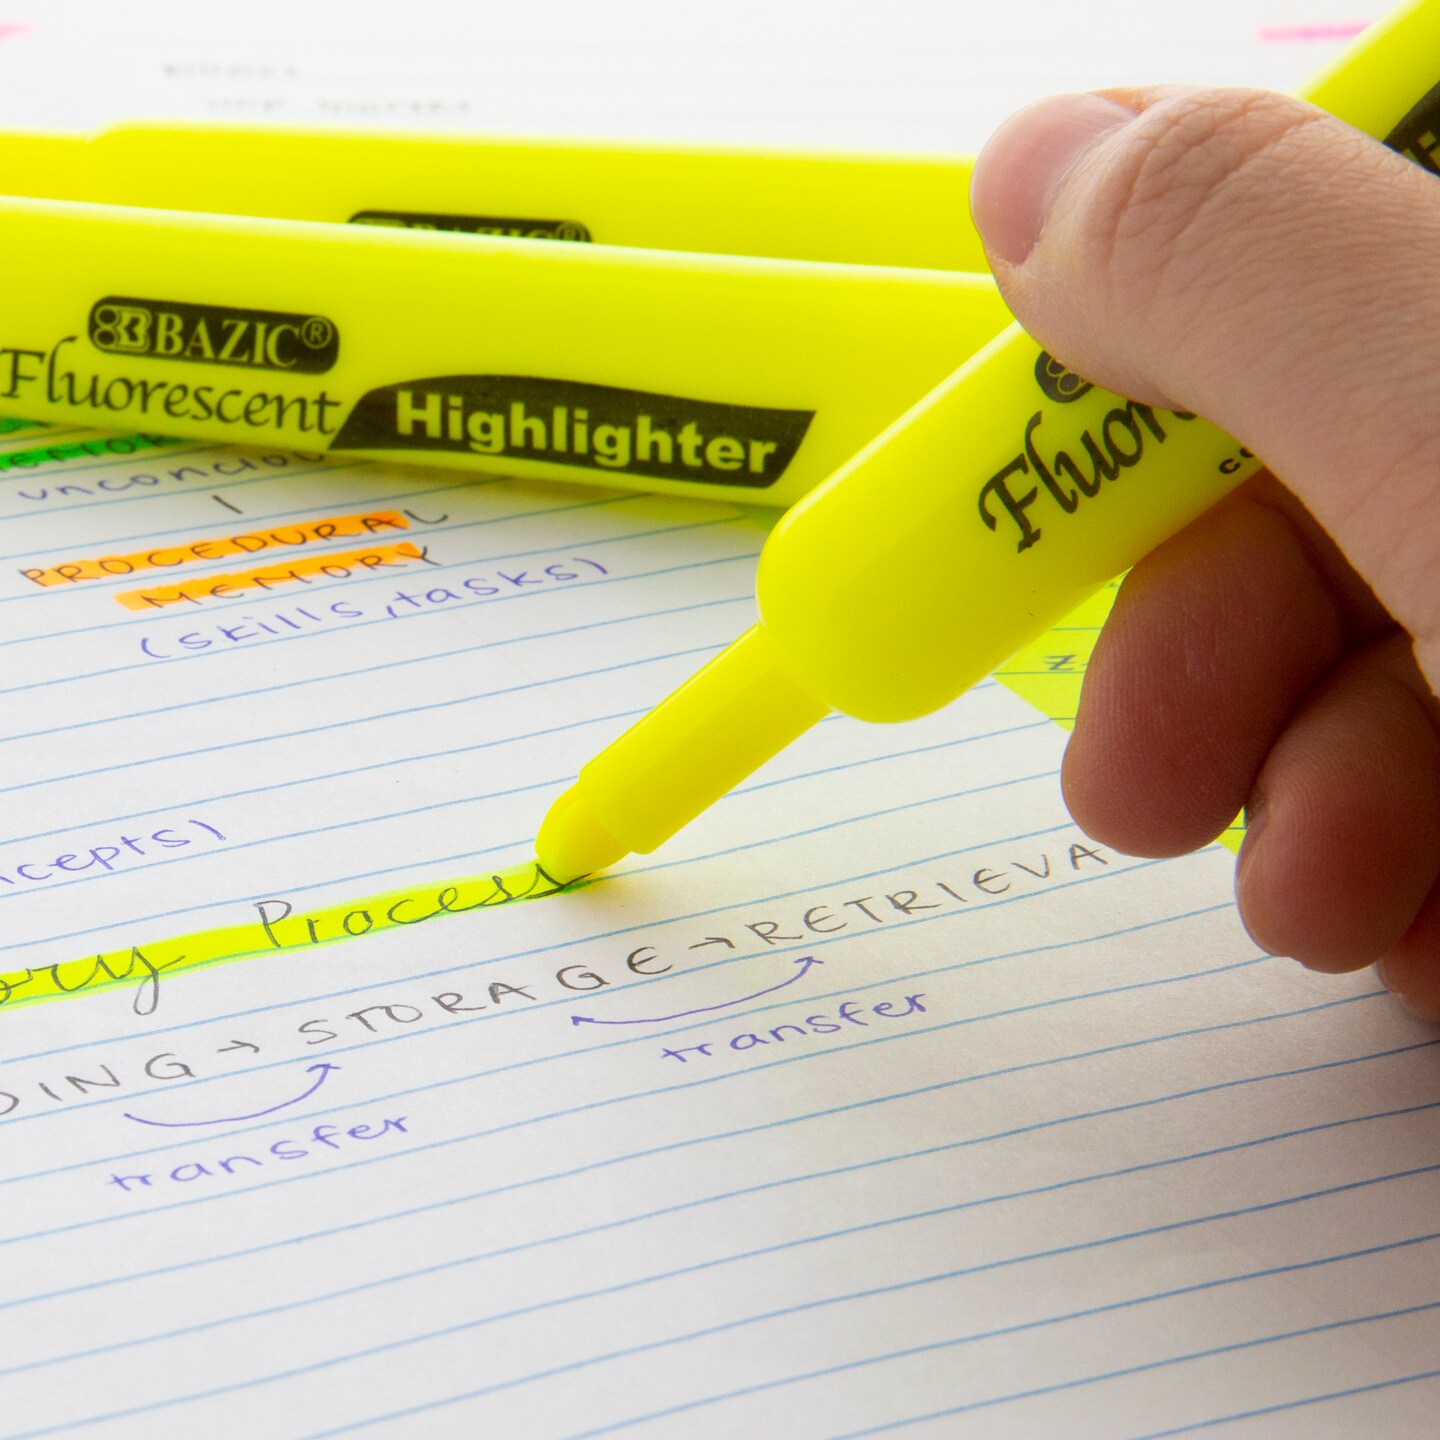 BAZIC®
BAZIC®
Fluorescent Highlighter
Fluor
unconciou
PROCEDURAL
MEMORY
(skills, tasks)
ncepts)
ory Process
DING → STORAGE → RETRIEVA
transfer
transfer